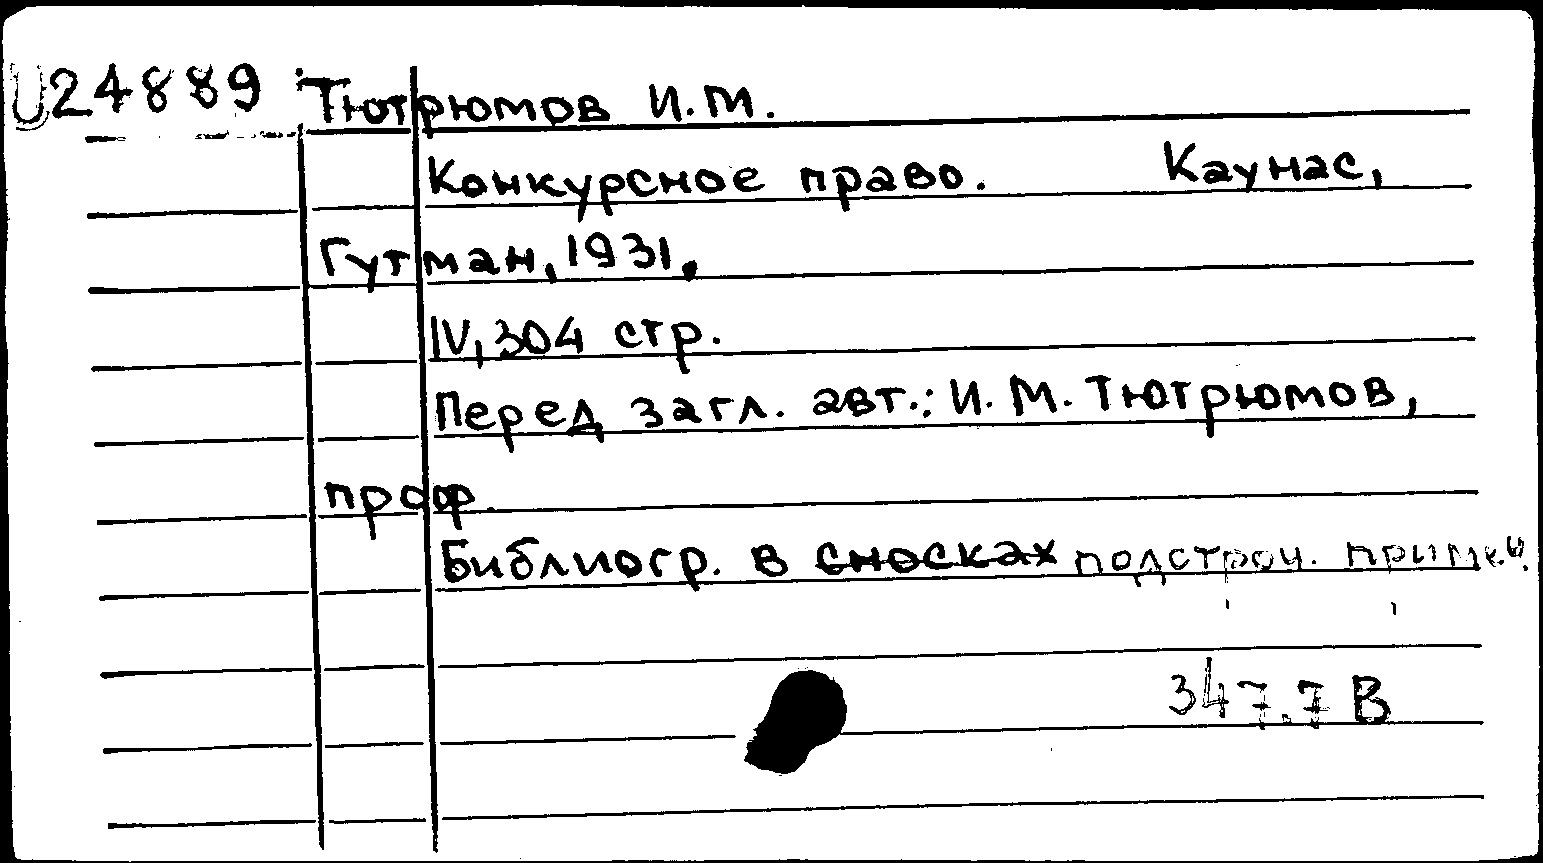 U24889 Тютрюмов И.М.
Конкурсное право. Каунас,
Гутман, 1931.
IV, 304 стр.
Перед загл. авт.: И. М. Тютрюмов,
проф.
Библиогр. в сносках подстроч. примеч.
347.7 В